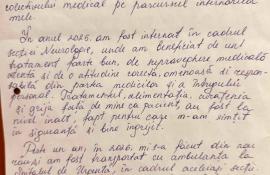 colectivului medical pe parcursul internărilor
mele.
În anul 2025, am fost internat în cadrul
secției Neurologie, unde am beneficiat de un
tratament foarte bun, de supraveghere medicală
atentă și de o atitudine corectă, omenoasă și respon-
sabilă din partea medicilor și a întregului
personal. Tratamentul, alimentația, curățenia
și grija față de mine ca pacient, au fost la
nivel înalt, fapt pentru care m-am simțit
în siguranță și bine îngrijit.
Peste un an, în 2026, mi s-a făcut din nou
rău și am fost transportat cu ambulanța la
Spitalul de Urgență, în cadrul aceleiași secții.